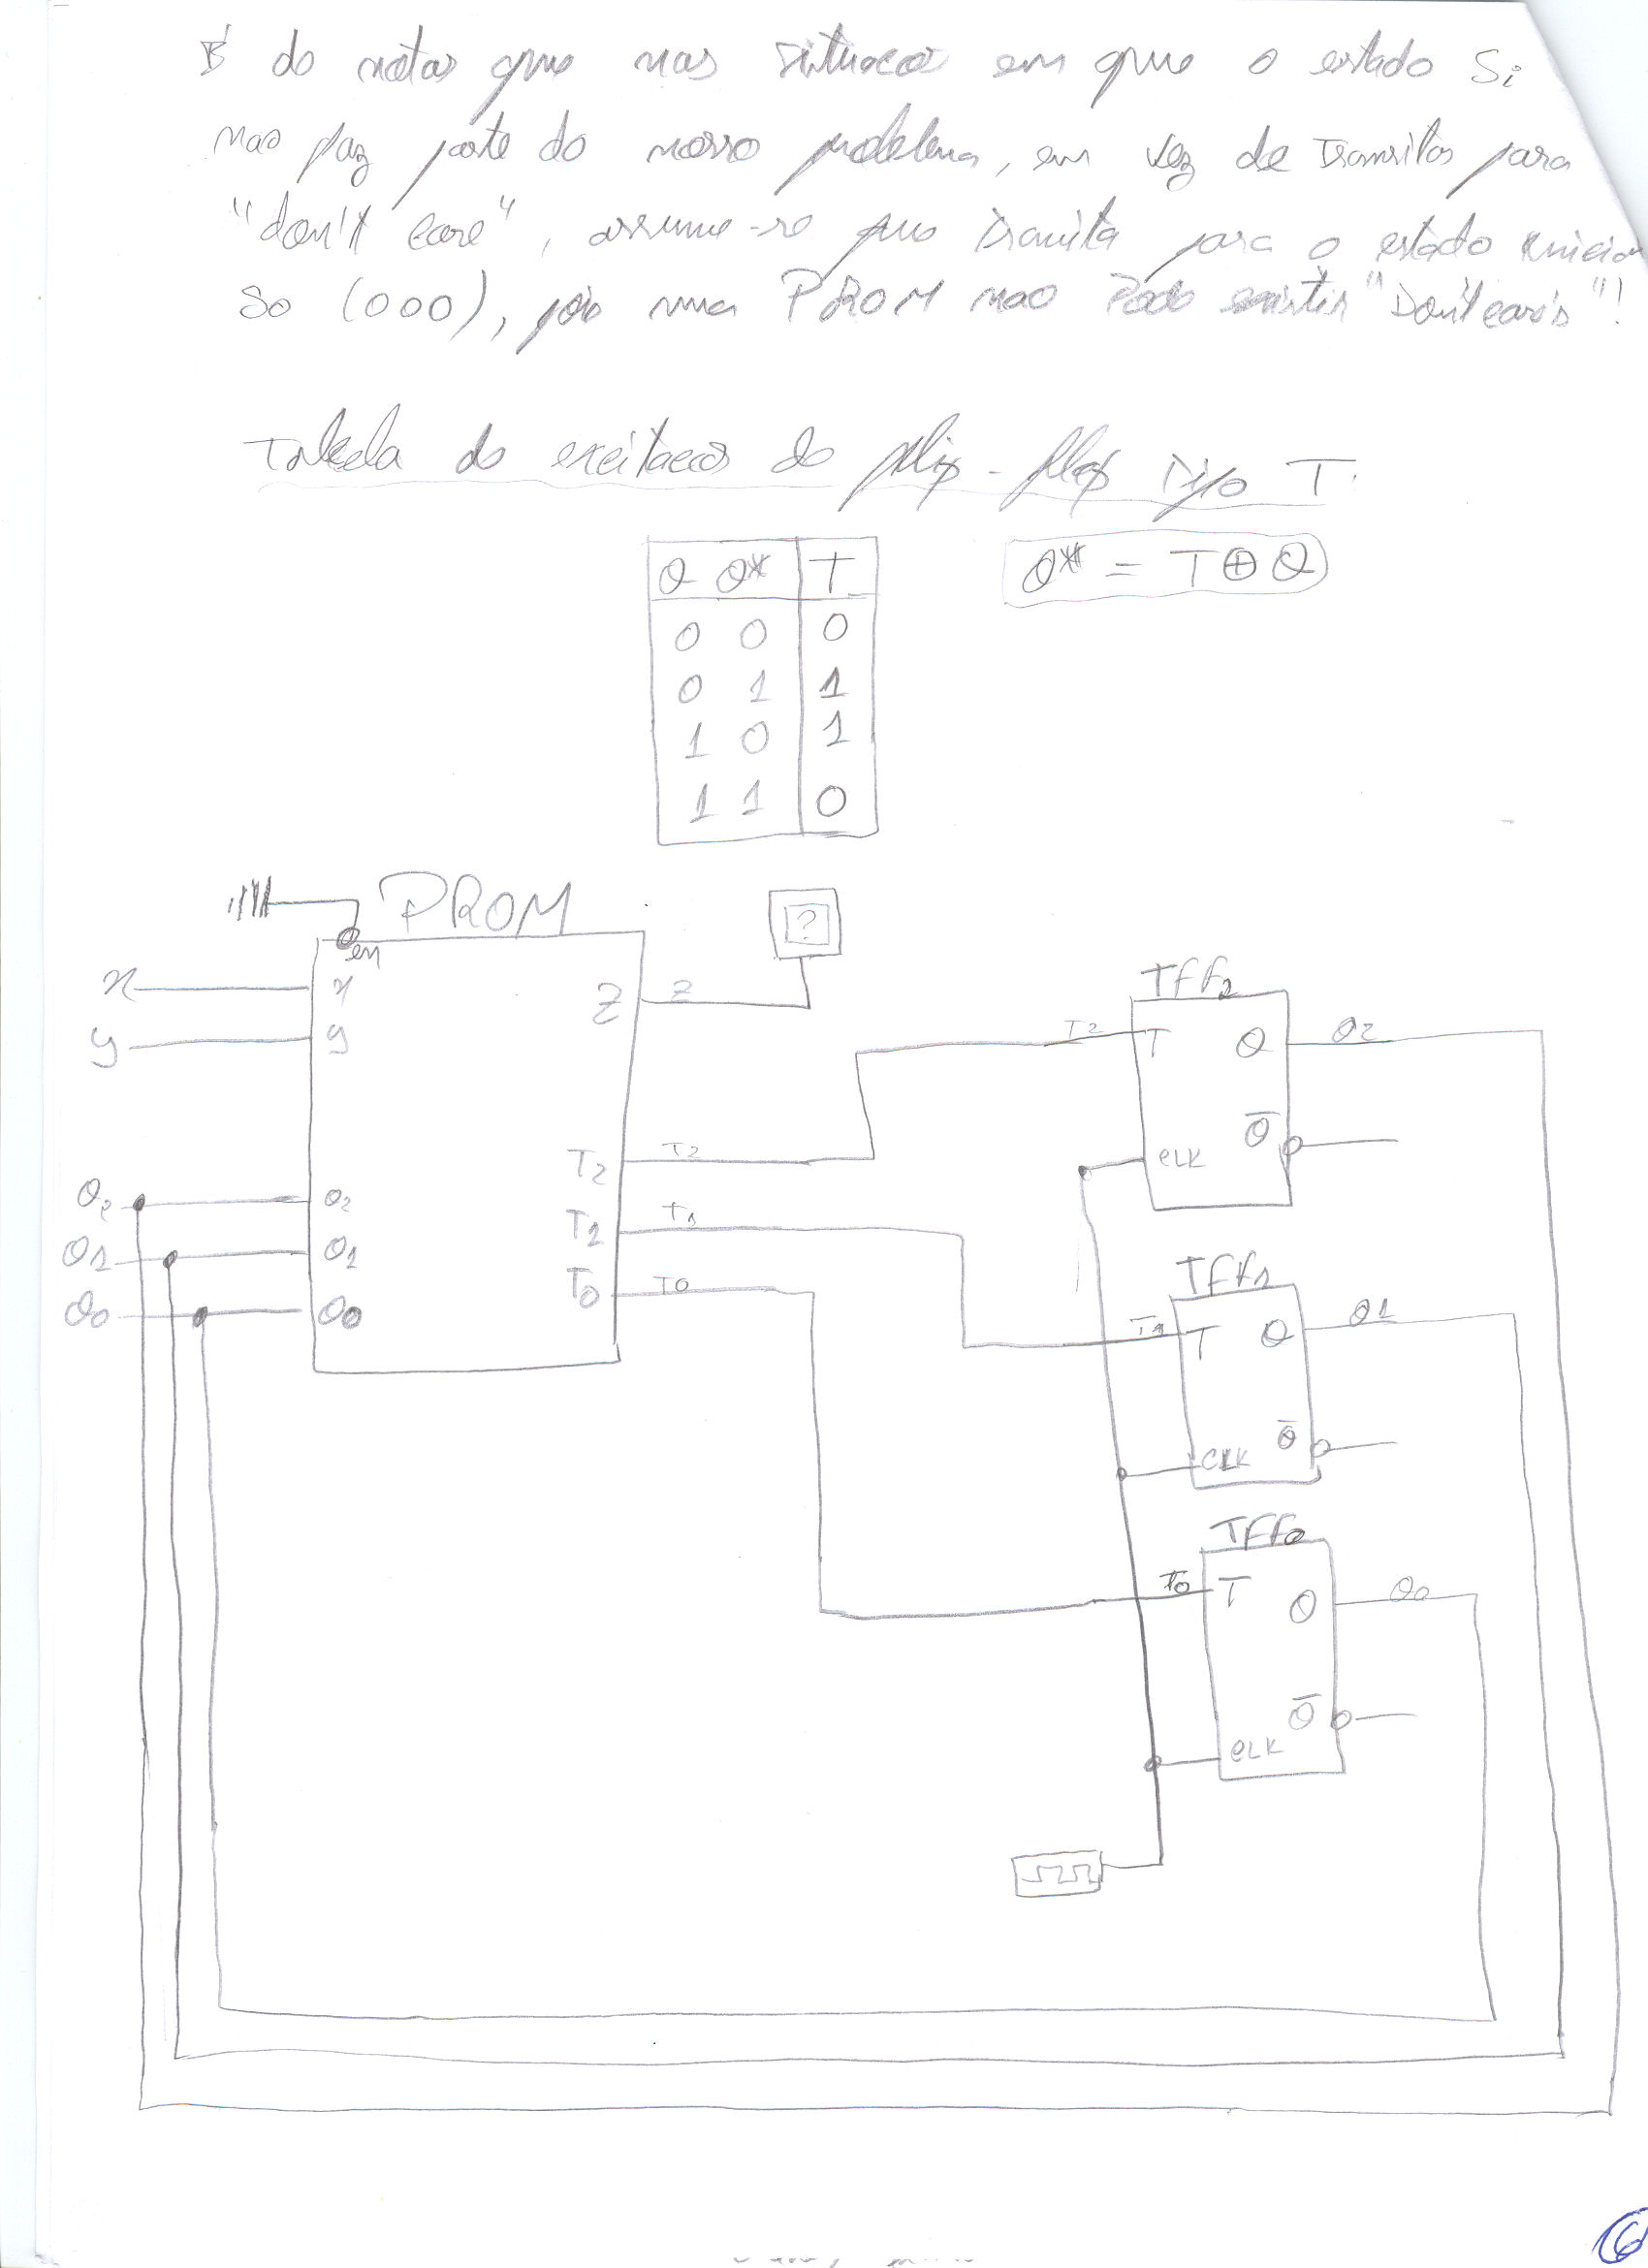 É de notar que nas situacos em que o estado Si
nao faz parte do nosso problema, em vez de Transitar para
"don't care", assume-se que transita para o estado inicial
So (000), pois numa PROM nao Pode existir "Don't cares"!
Tabela de excitacao do flip-flop Tipo T.
Q Q* T
Q* = T⊕Q
0 0 0
0 1 1
1 0 1
1 1 0
PROM
en
?
x x Z z
y y
TFF2
T2 T Q Q2
Q̅
CLK
T2 T2
Q2 Q2
T1 T1
Q1 Q1
T0 T0
Q0 Q0
TFF1
T1 T Q Q1
Q̅
CLK
TFF0
T0 T Q Q0
Q̅
CLK
6